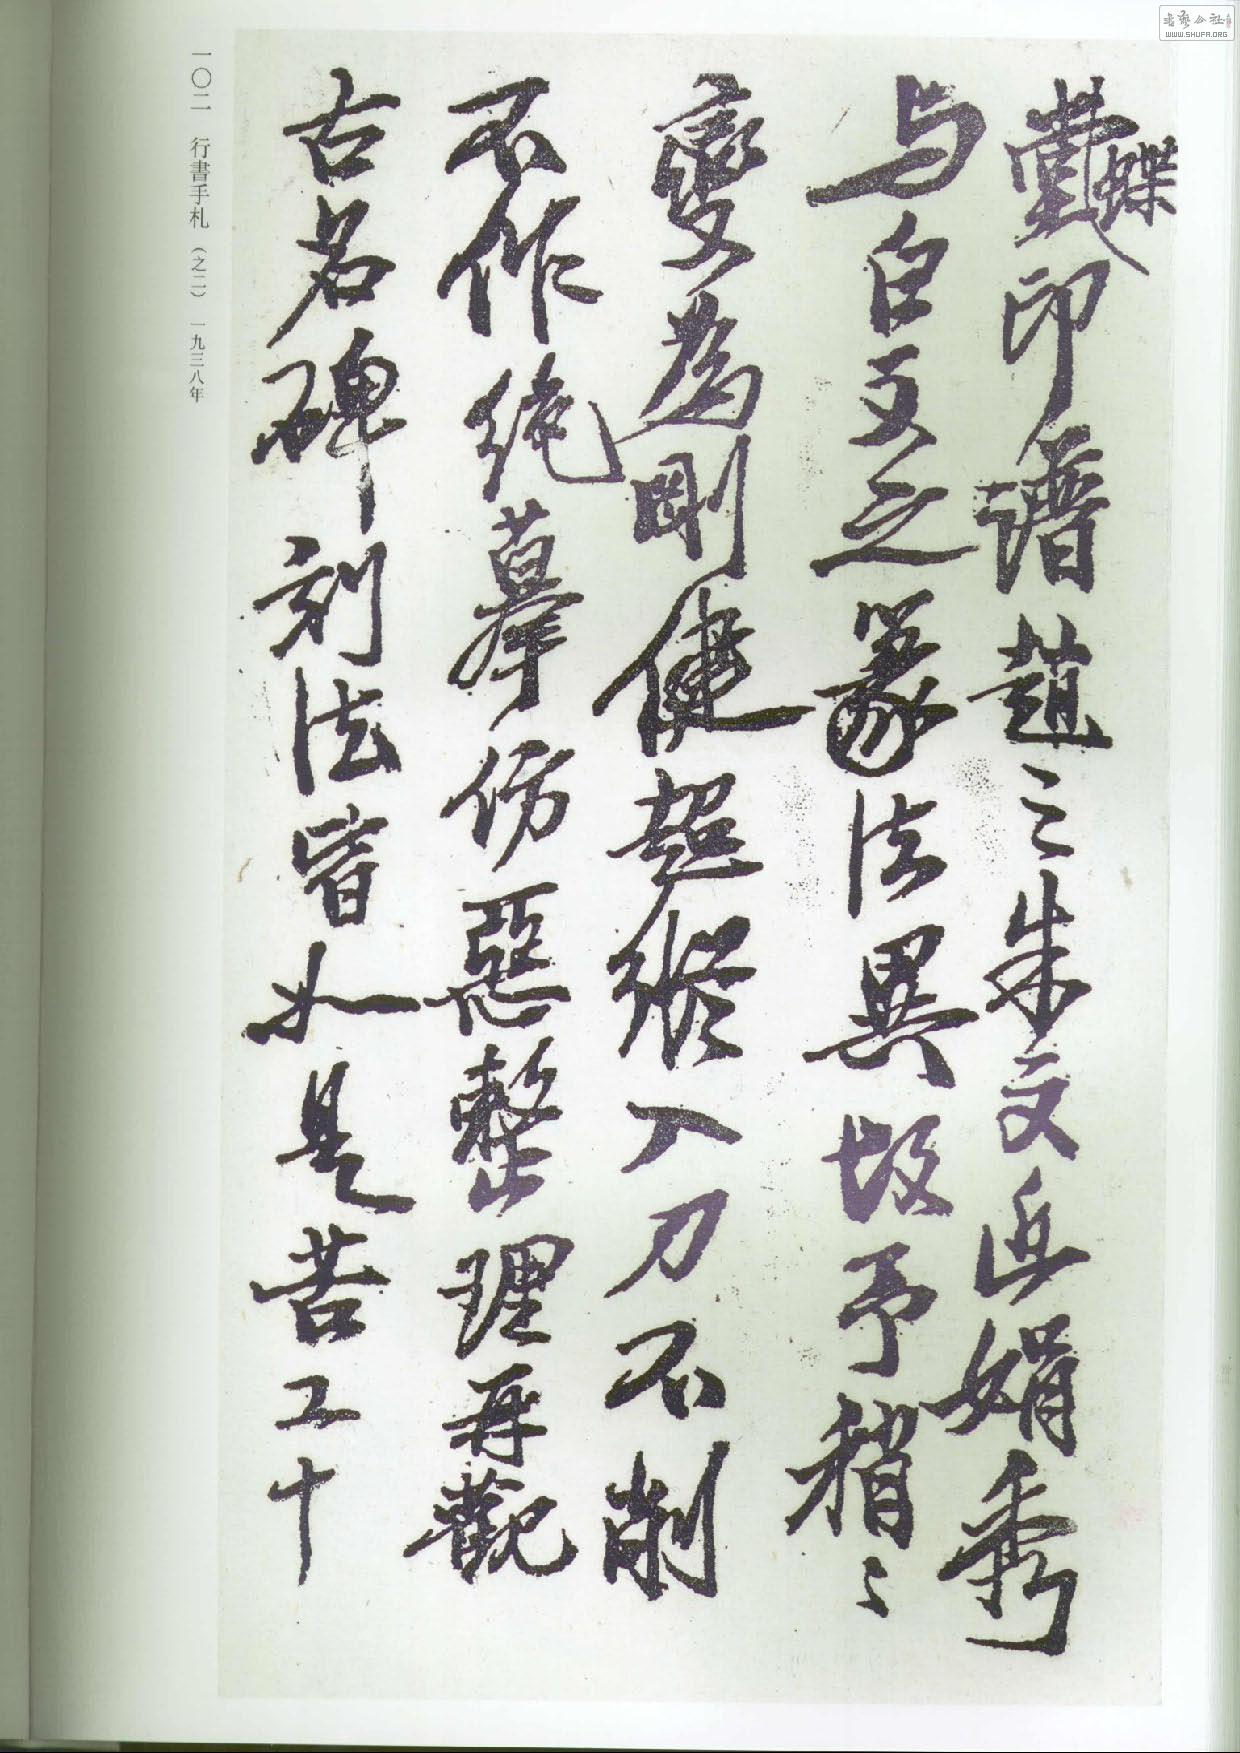 蝶
堂印譜趙之朱文近娟秀
与白文之篆法異故予稍〻
變為剛健超縱入刀不削
不作絕摹仿惡整理再觀
古名碑刻法皆如是苦工十
一〇二 行書手札(之二) 一九三八年
書藝公社
WWW.SHUFA.ORG